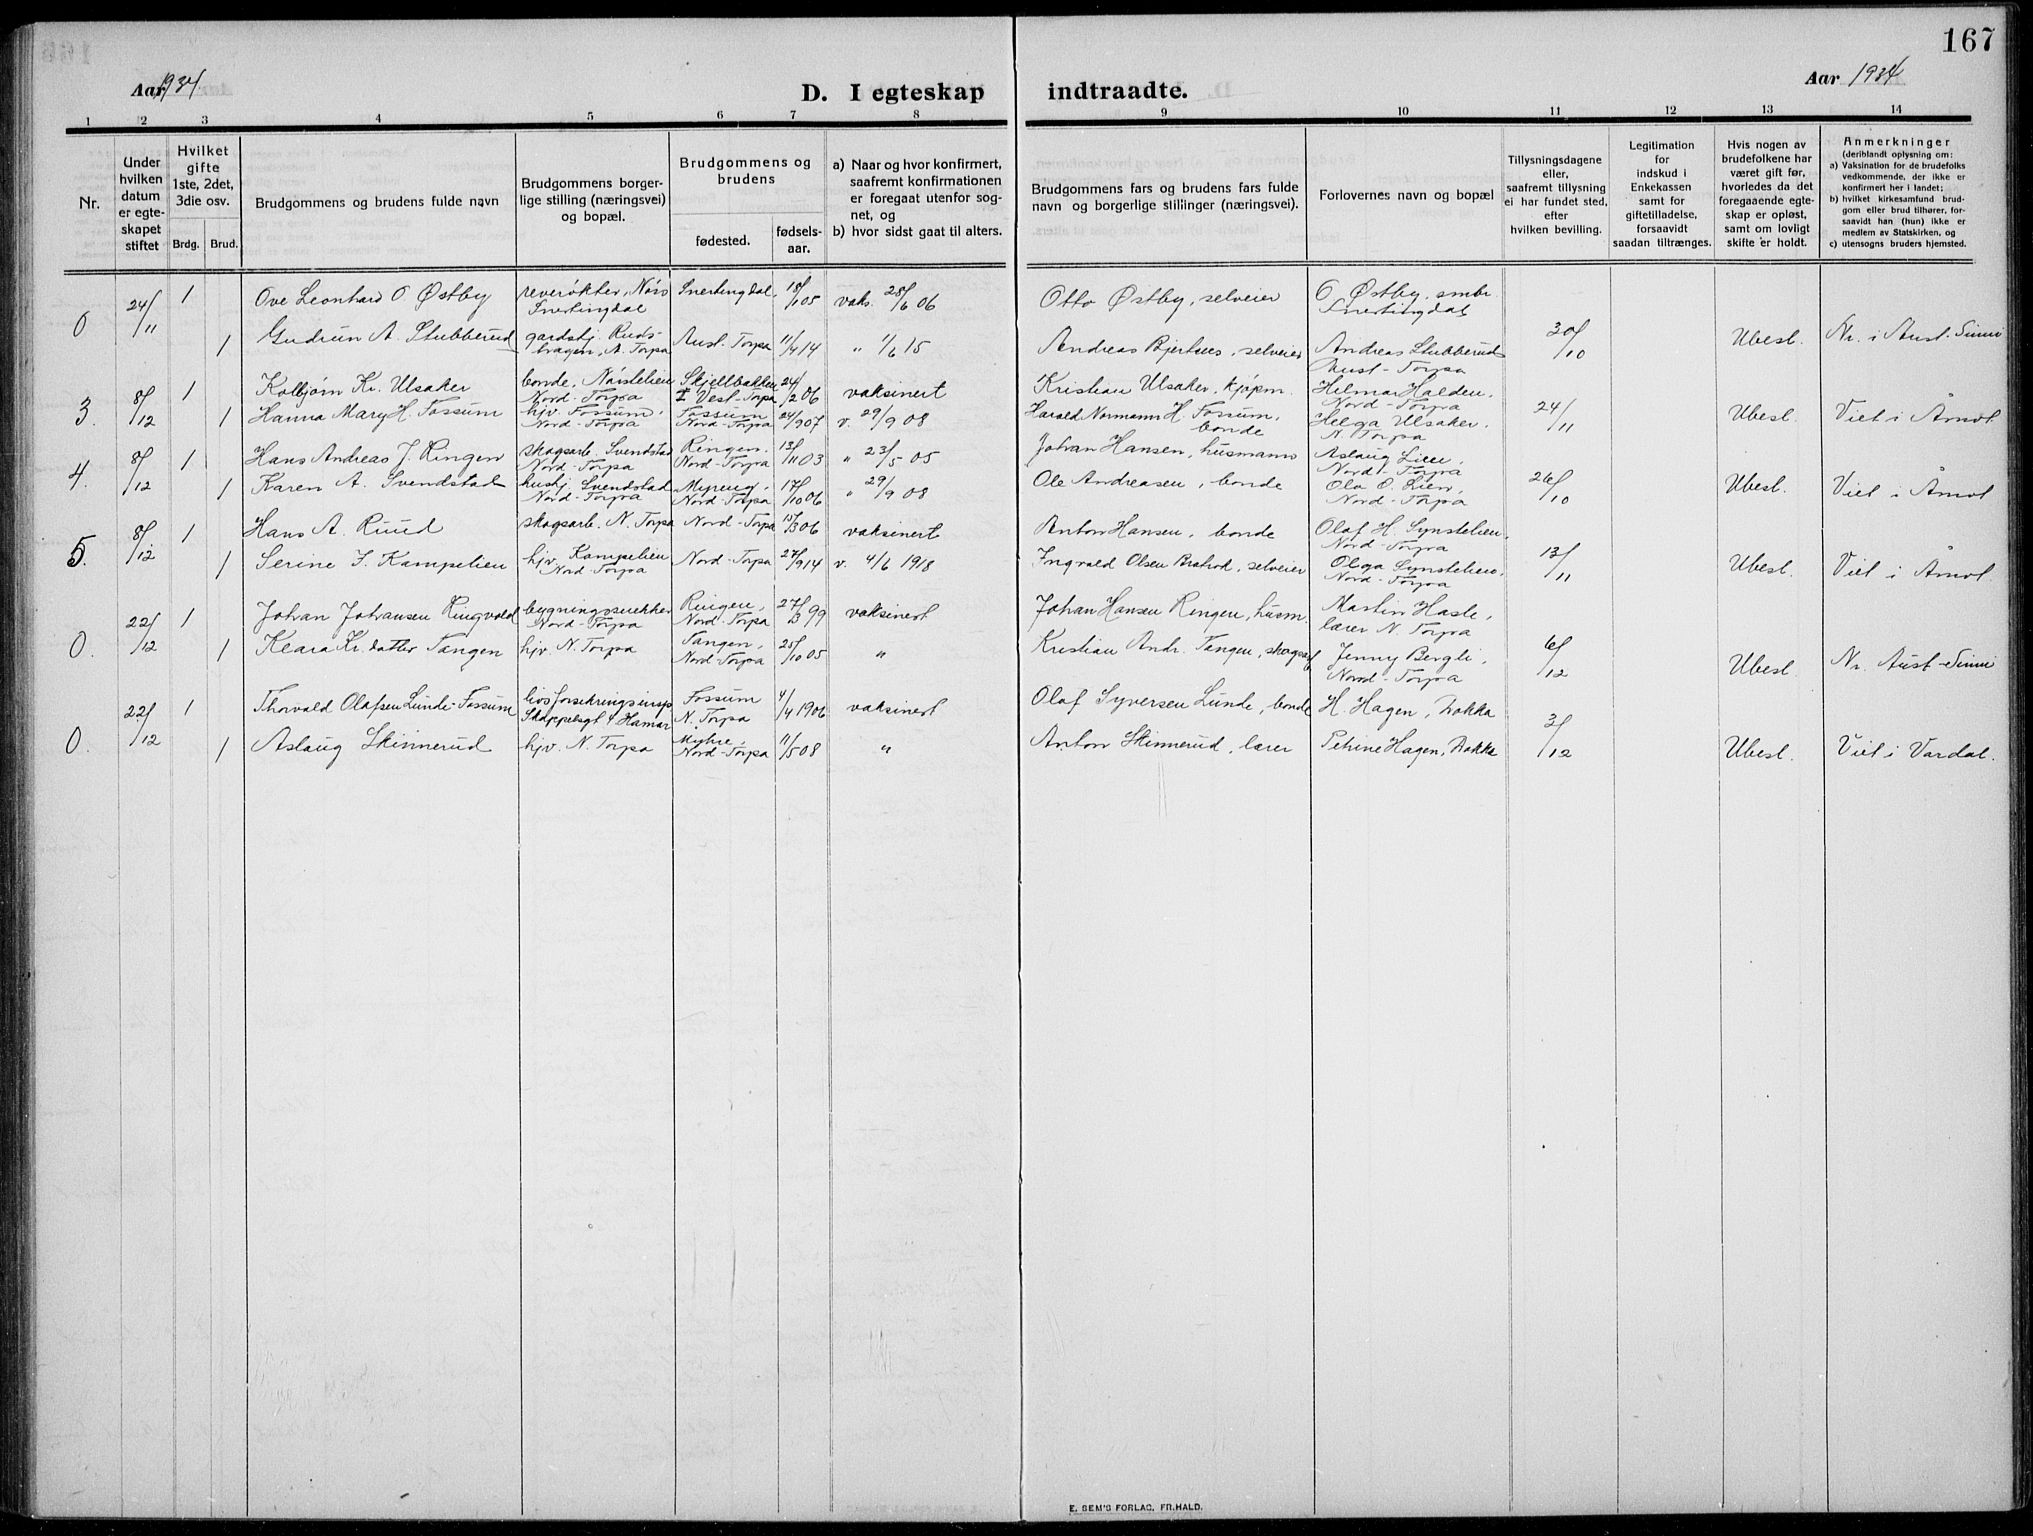 167
Aar 1934.
D. I egteskap indtraadte.
Aar 1934
1 2 3 4 5 6 7 8 9 10 11 12 13 14
Nr.
Under hvilken datum er egteskapet stiftet
Hvilket gifte 1ste, 2det, 3die osv.
Brdg. Brud.
Brudgommens og brudens fulde navn
Brudgommens borgerlige stilling (næringsvei) og bopæl.
Brudgommens og brudens
fødested. fødselsaar.
a) Naar og hvor konfirmert, saafremt konfirmationen er foregaat utenfor sognet, og
b) hvor sidst gaat til alters.
Brudgommens fars og brudens fars fulde navn og borgerlige stillinger (næringsvei).
Forlovernes navn og bopæl
Tillysningsdagene eller, saafremt tillysning ei har fundet sted, efter hvilken bevilling.
Legitimation for indskud i Enkekassen samt for giftetilladelse, forsaavidt saadan tiltrænges.
Hvis nogen av brudefolkene har været gift før, hvorledes da det foregaaende egteskap er opløst, samt om lovligt skifte er holdt.
Anmerkninger (deriblandt oplysning om:
a) Vaksination for de brudefolks vedkommende, der ikke er konfirmert her i landet;
b) hvilket kirkesamfund brudgom eller brud tilhører, forsaavidt han (hun) ikke er medlem av Statskirken, og
c) utensogns bruders hjemsted.
0 24/11 1 Ove Leonhard O Østby reverøkter, Nøis Snertingdal Snertingdal, 18/1 05 vaks. 28/6 06 Otto Østby, selveier O. Østby, smbr. Snertingdal 30/10 Ubesl. Nr. i Aust-Sinni
1 Gudrun A. Stubberud gardstj. Rudsbragen, A. Torpa Aust-Torpa 11/4 14 " 1/6 15 Andreas Bjertnes, selveier Andreas Stubberud Aust-Torpa
3. 8/12 1 Kolbjørn Kr. Ulsaker bonde, Nørstelien Nord-Torpa Skjellbakken i Vest-Torpa 24/2 06 vaksinert Kristian Ulsaker, kjøpm. Helmar Halden, Nord-Torpa 24/11 Ubesl. Viet i Åmot
1 Hanna Mary H. Fossum hjv. Fossum, Nord-Torpa Fossum Nord-Torpa 24/9 07 v. 29/9 08 Harald Normann H. Fossum, bonde Helga Ulsaker, N. Torpa
4. 8/12 1 Hans Andreas J. Ringen skogsarb. Svendstad Nord-Torpa Ringen, Nord-Torpa 13/11 03 " 23/5 05 Johan Hansen, husmann Aslaug Lien, Nord-Torpa 26/10 Ubesl. Viet i Åmot
1 Karen A. Svendstad hustj. Svendstad Nord-Torpa Myreng, Nord-Torpa 17/10 06 " 29/9 08 Ole Andreasen, bonde Ola O. Lien, Nord-Torpa
5. 8/12 1 Hans A. Ruud skogsarb. N. Torpa Nord-Torpa 15/3 06 vaksinert Anton Hansen, bonde Olaf H. Synstelien, Nord-Torpa 13/11 Ubesl. Viet i Åmot
1 Serine I. Kampelien hjv. Kampelien Nord-Torpa Nord-Torpa 27/9 14 v. 4/6 1918 Ingvald Olsen Bratrod, selveier Olga Synstelien, Nord-Torpa
0. 22/12 1 Johan Johansen Ringvold bygningssnekker Nord-Torpa Ringen, Nord-Torpa 27/3 99 vaksinert Johan Hansen Ringen, husm. Martin Hasle, lærer N. Torpa 6/12 Ubesl. Nr. Aust-Sinni
1 Klara Kr. datter Tangen hjv. N. Torpa Tangen, Nord-Torpa 25/10 05 " Kristian Andr. Tangen, skogsarb Jenny Bergli, Nord-Torpa
0. 22/12 1 Thorvald Olafsen Lunde-Fossum livsforsikringsinsp Skappelsgt 4 Hamar Fossum N. Torpa 4/4 1906 vaksinert Olaf Syversen Lunde, bonde H. Hagen, Dokka 3/12 Ubesl. Viet i Vardal.
1 Aslaug Skinnerud hjv. N. Torpa Myhre, Nord-Torpa 11/5 08 " Anton Skinnerud, lærer Petrine Hagen, Dokka
E. SEM'S FORLAG, FR.HALD.